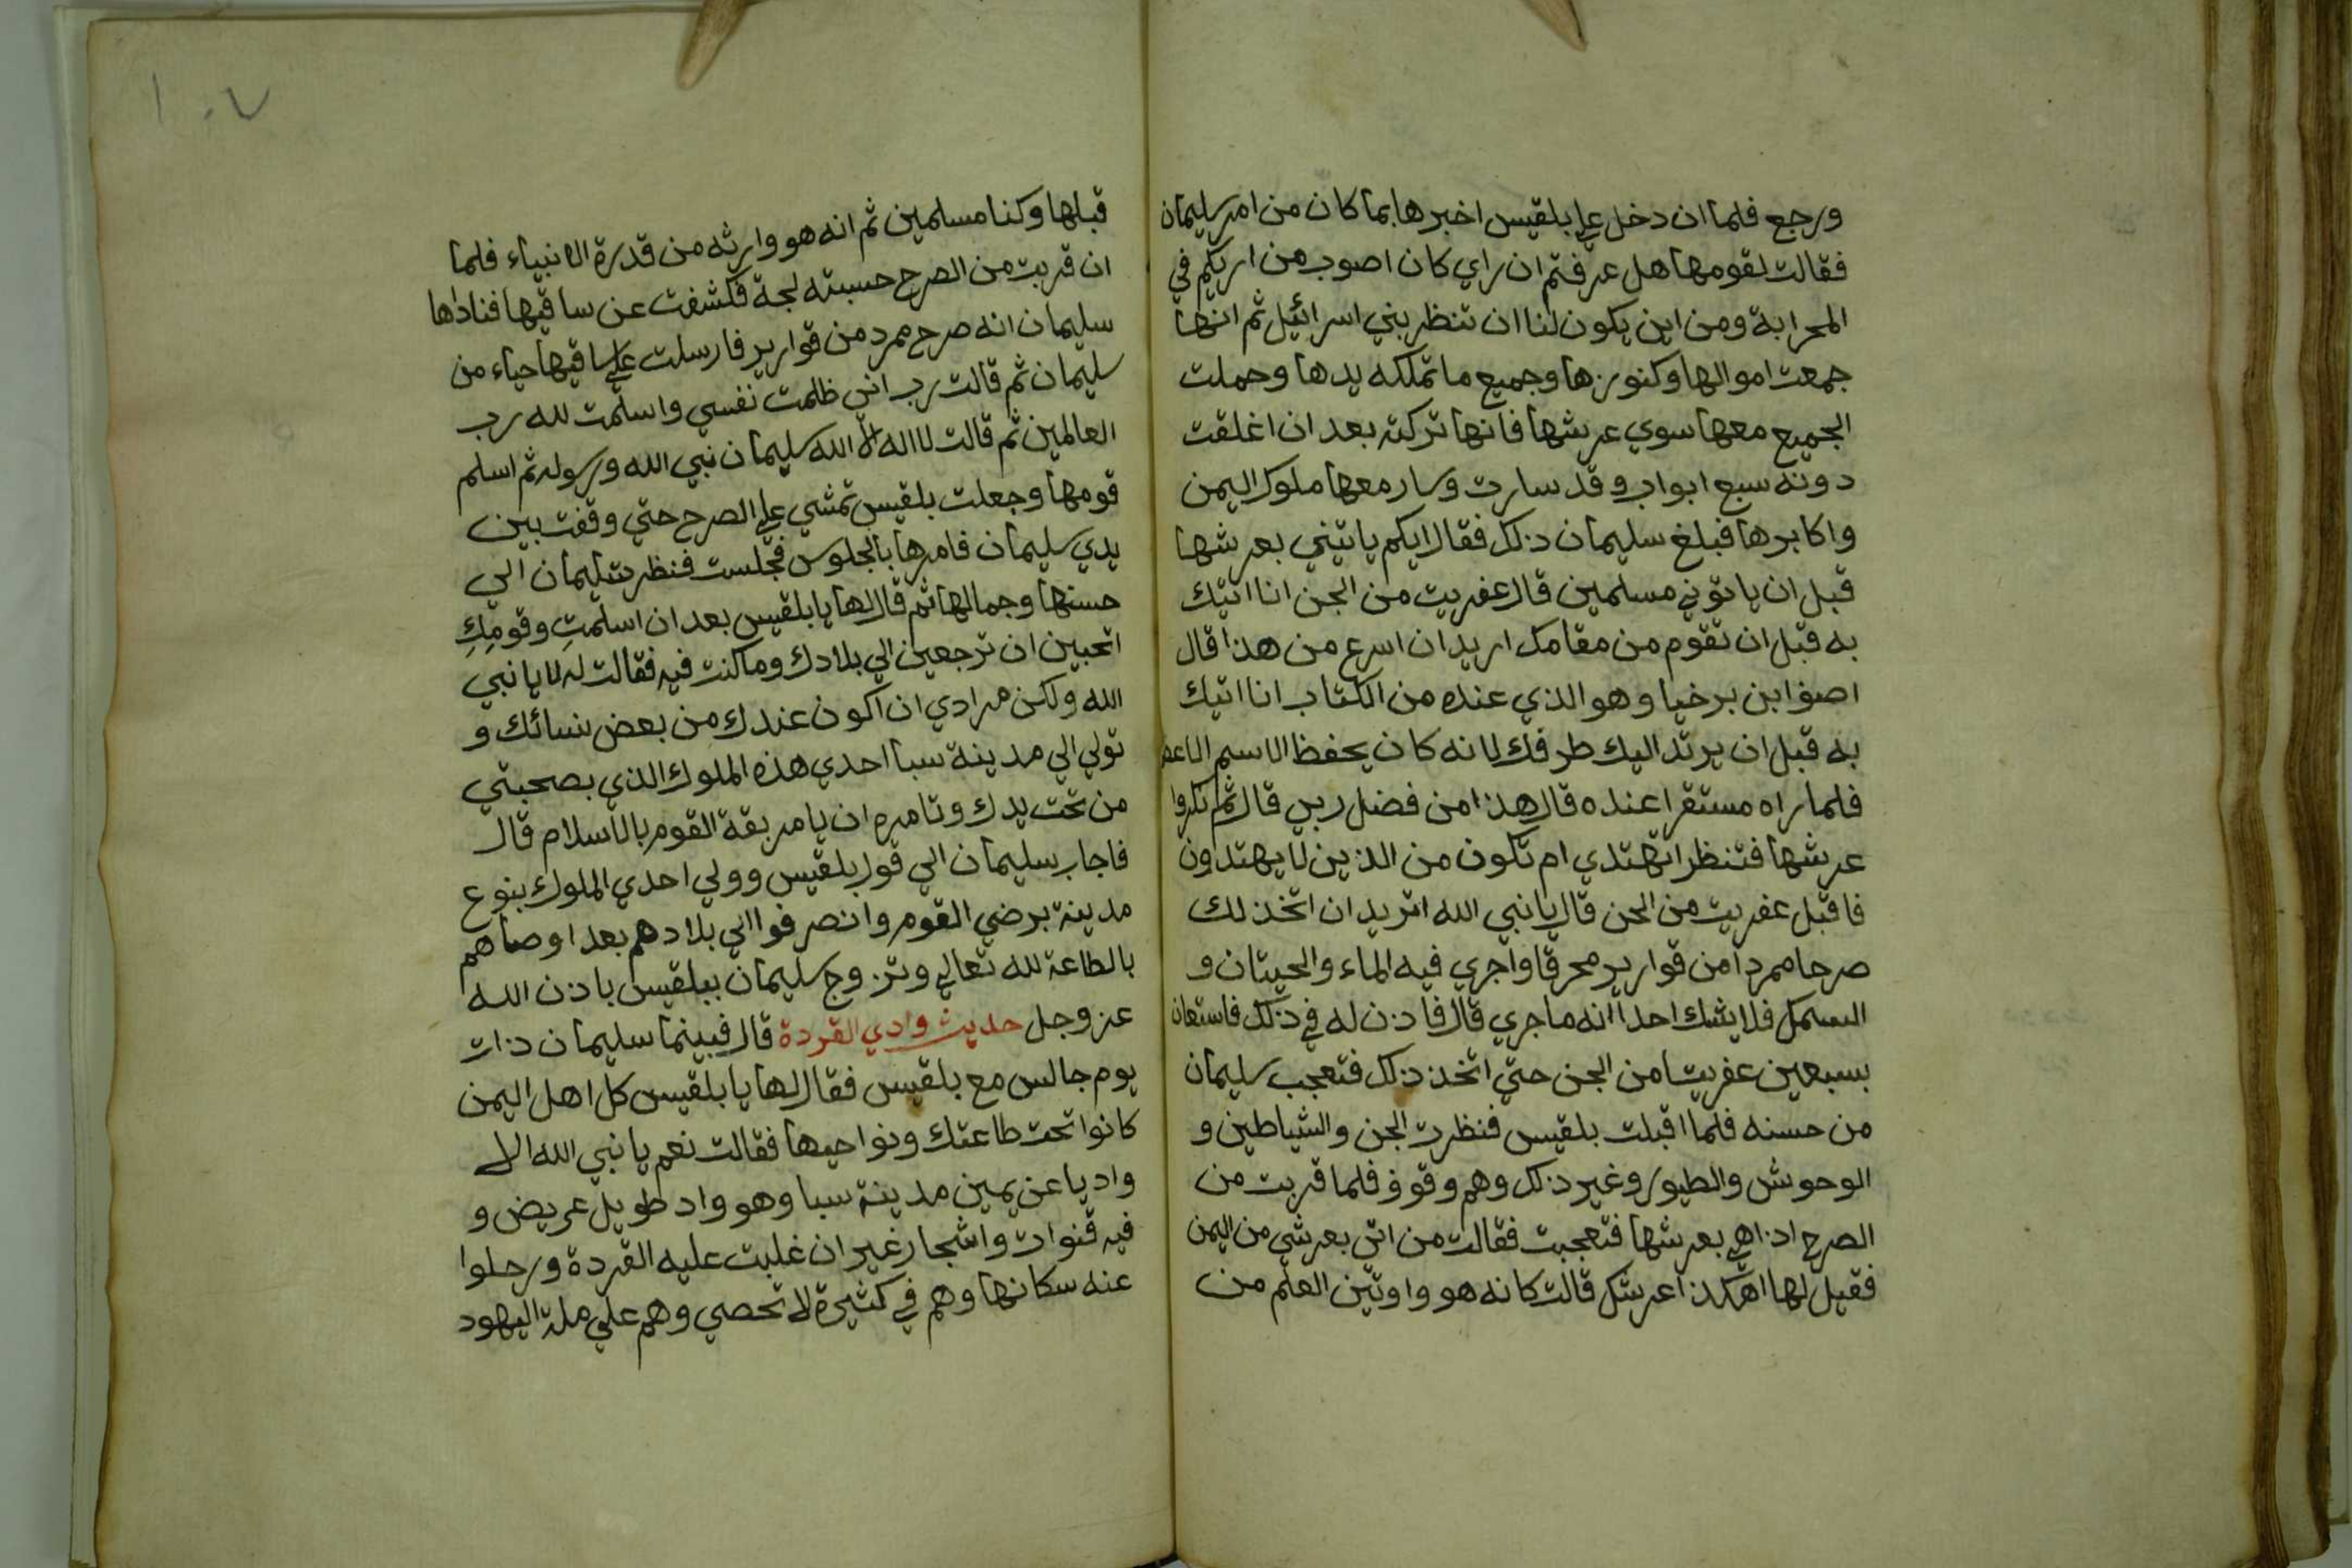 ورجع فلما ان دخل علي بلقيس اخبرها بما كان من امر سليمان
فقالت لقومها هل عرفتم ان راي كان اصوب من اريكم في
المحرابة ومن اين يكون لنا ان تنظر بني اسرائيل ثم انها
جمعت اموالها وكنوزها وجميع ما تملكه يدها وحملت
الجميع معها سوي عرشها فانها تركته بعد ان اغلقت
دونه سبع ابواب وقد سارت وسار معها ملوك اليمن
واكابرها فبلغ سليمان ذلك فقال ايكم ياتيني بعرشها
قبل ان ياتوني مسلمين قال عفريت من الجن انا اتيك
به قبل ان تقوم من مقامك اريد ان اسرع من هذا قال
اصف ابن برخيا وهو الذي عنده من الكتاب انا اتيك
به قبل ان يرتد اليك طرفك لانه كان يحفظ الاسم الاعظم
فلما راه مستقرا عنده قال هذا من فضل ربي قال ثم نكروا
عرشها فتنظر اتهتدي ام تكون من الذين لا يهتدون
فاقبل عفريت من الجن قال يا نبي الله اتريد ان اتخذ لك
صرحا ممردا من قوارير محرقا واجري فيه الماء والحيتان و
السمك فلا يشك احدا انه ماجري قال فاذن له في ذلك فاستعان
بسبعين عفريتا من الجن حتي اتخذ ذلك فتعجب سليمان
من حسنه فلما اقبلت بلقيس فنظرت الجن والشياطين و
الوحوش والطيور وغير ذلك وهم وقوف فلما قربت من
الصرح اذا هي بعرشها فتعجبت فقالت من اتي بعرشي من اليمن
فقيل لها اهكذا عرشك قالت كانه هو واوتين العلم من
١٠٧
قبلها وكنا مسلمين ثم انه هو وارثه من قدرة الانبياء فلما
ان قربت من الصرح حسبته لجة فكشفت عن ساقيها فناداها
سليمان انه صرح ممرد من قوارير فارسلت علي ساقيها حياء من
سليمان ثم قالت رب اني ظلمت نفسي واسلمت لله رب
العالمين ثم قالت لا اله الا الله سليمان نبي الله ورسوله ثم اسلم
قومها وجعلت بلقيس تمشي علي الصرح حتي وقفت بين
يدي سليمان فامرها بالجلوس فجلست فنظرت سليمان الي
حسنها وجمالها ثم قال لها يا بلقيس بعد ان اسلمتِ وقومِكِ
اتحبين ان ترجعين الي بلادك وما كنت فيه فقالت له لا يا نبي
الله ولكن مرادي ان اكون عندك من بعض نسائك و
تولي الي مدينة سبا احدي هذه الملوك الذي بصحبتي
من تحت يدك وتامره ان يامر بقة القوم بالاسلام قال
فاجاب سليمان الي قول بلقيس وولي احدي الملوك بنوع
مدينة برضي القوم وانصرفوا الي بلادهم بعد اوصاهم
بالطاعة لله تعالي وتزوج سليمان ببلقيس باذن الله
عز وجل حديث وادي القردة قال فبينما سليمان ذات
يوم جالس مع بلقيس فقال لها يا بلقيس كل اهل اليمن
كانوا تحت طاعتك ونواحيها فقالت نعم يا نبي الله الا
واديا عن يمين مدينة سبا وهو واد طويل عريض و
فيه قنوات واشجار غير ان غلبت عليه القردة ورحلوا
عنه سكانها وهم في كثيرة لا تحصي وهم علي ملة اليهود